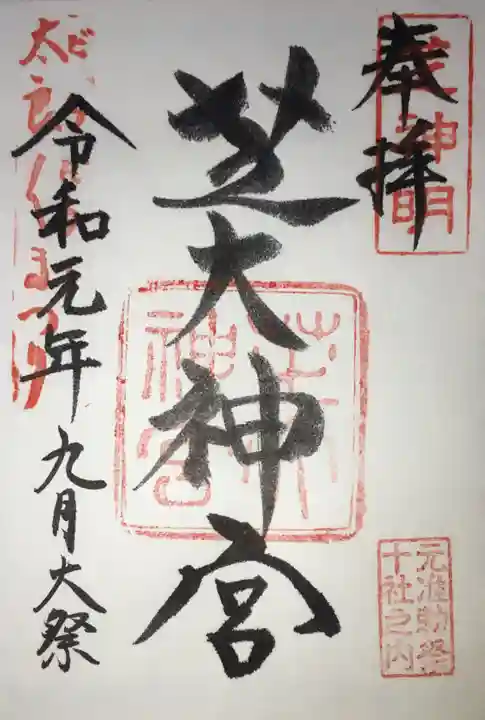 奉拝
芝神明
元准勅祭
十社之内
芝大神宮
芝大神宮
令和元年九月大祭
太郎